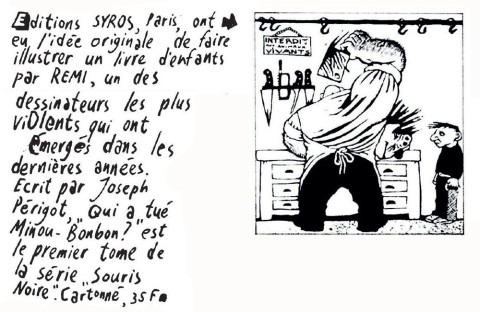 Editions SYROS, Paris, ont
eu l'idée originale de faire
illustrer un livre d'enfants
par REMI, un des
dessinateurs les plus
viOlents qui ont
émergés dans les
dernières années.
Ecrit par Joseph
Périgot, "Qui a tué
Minou-Bonbon?" est
le premier tome de
la série "Souris
Noire". Cartonné, 35F
INTERDIT
AUX ANIMAUX
VIVANTS